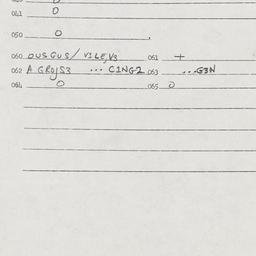 041 0
050 0
060 OUSGUS/ VILE,V3 061 +
062 A GROJS3 ... C1NG2 063 ...G3N
064 0 065 0